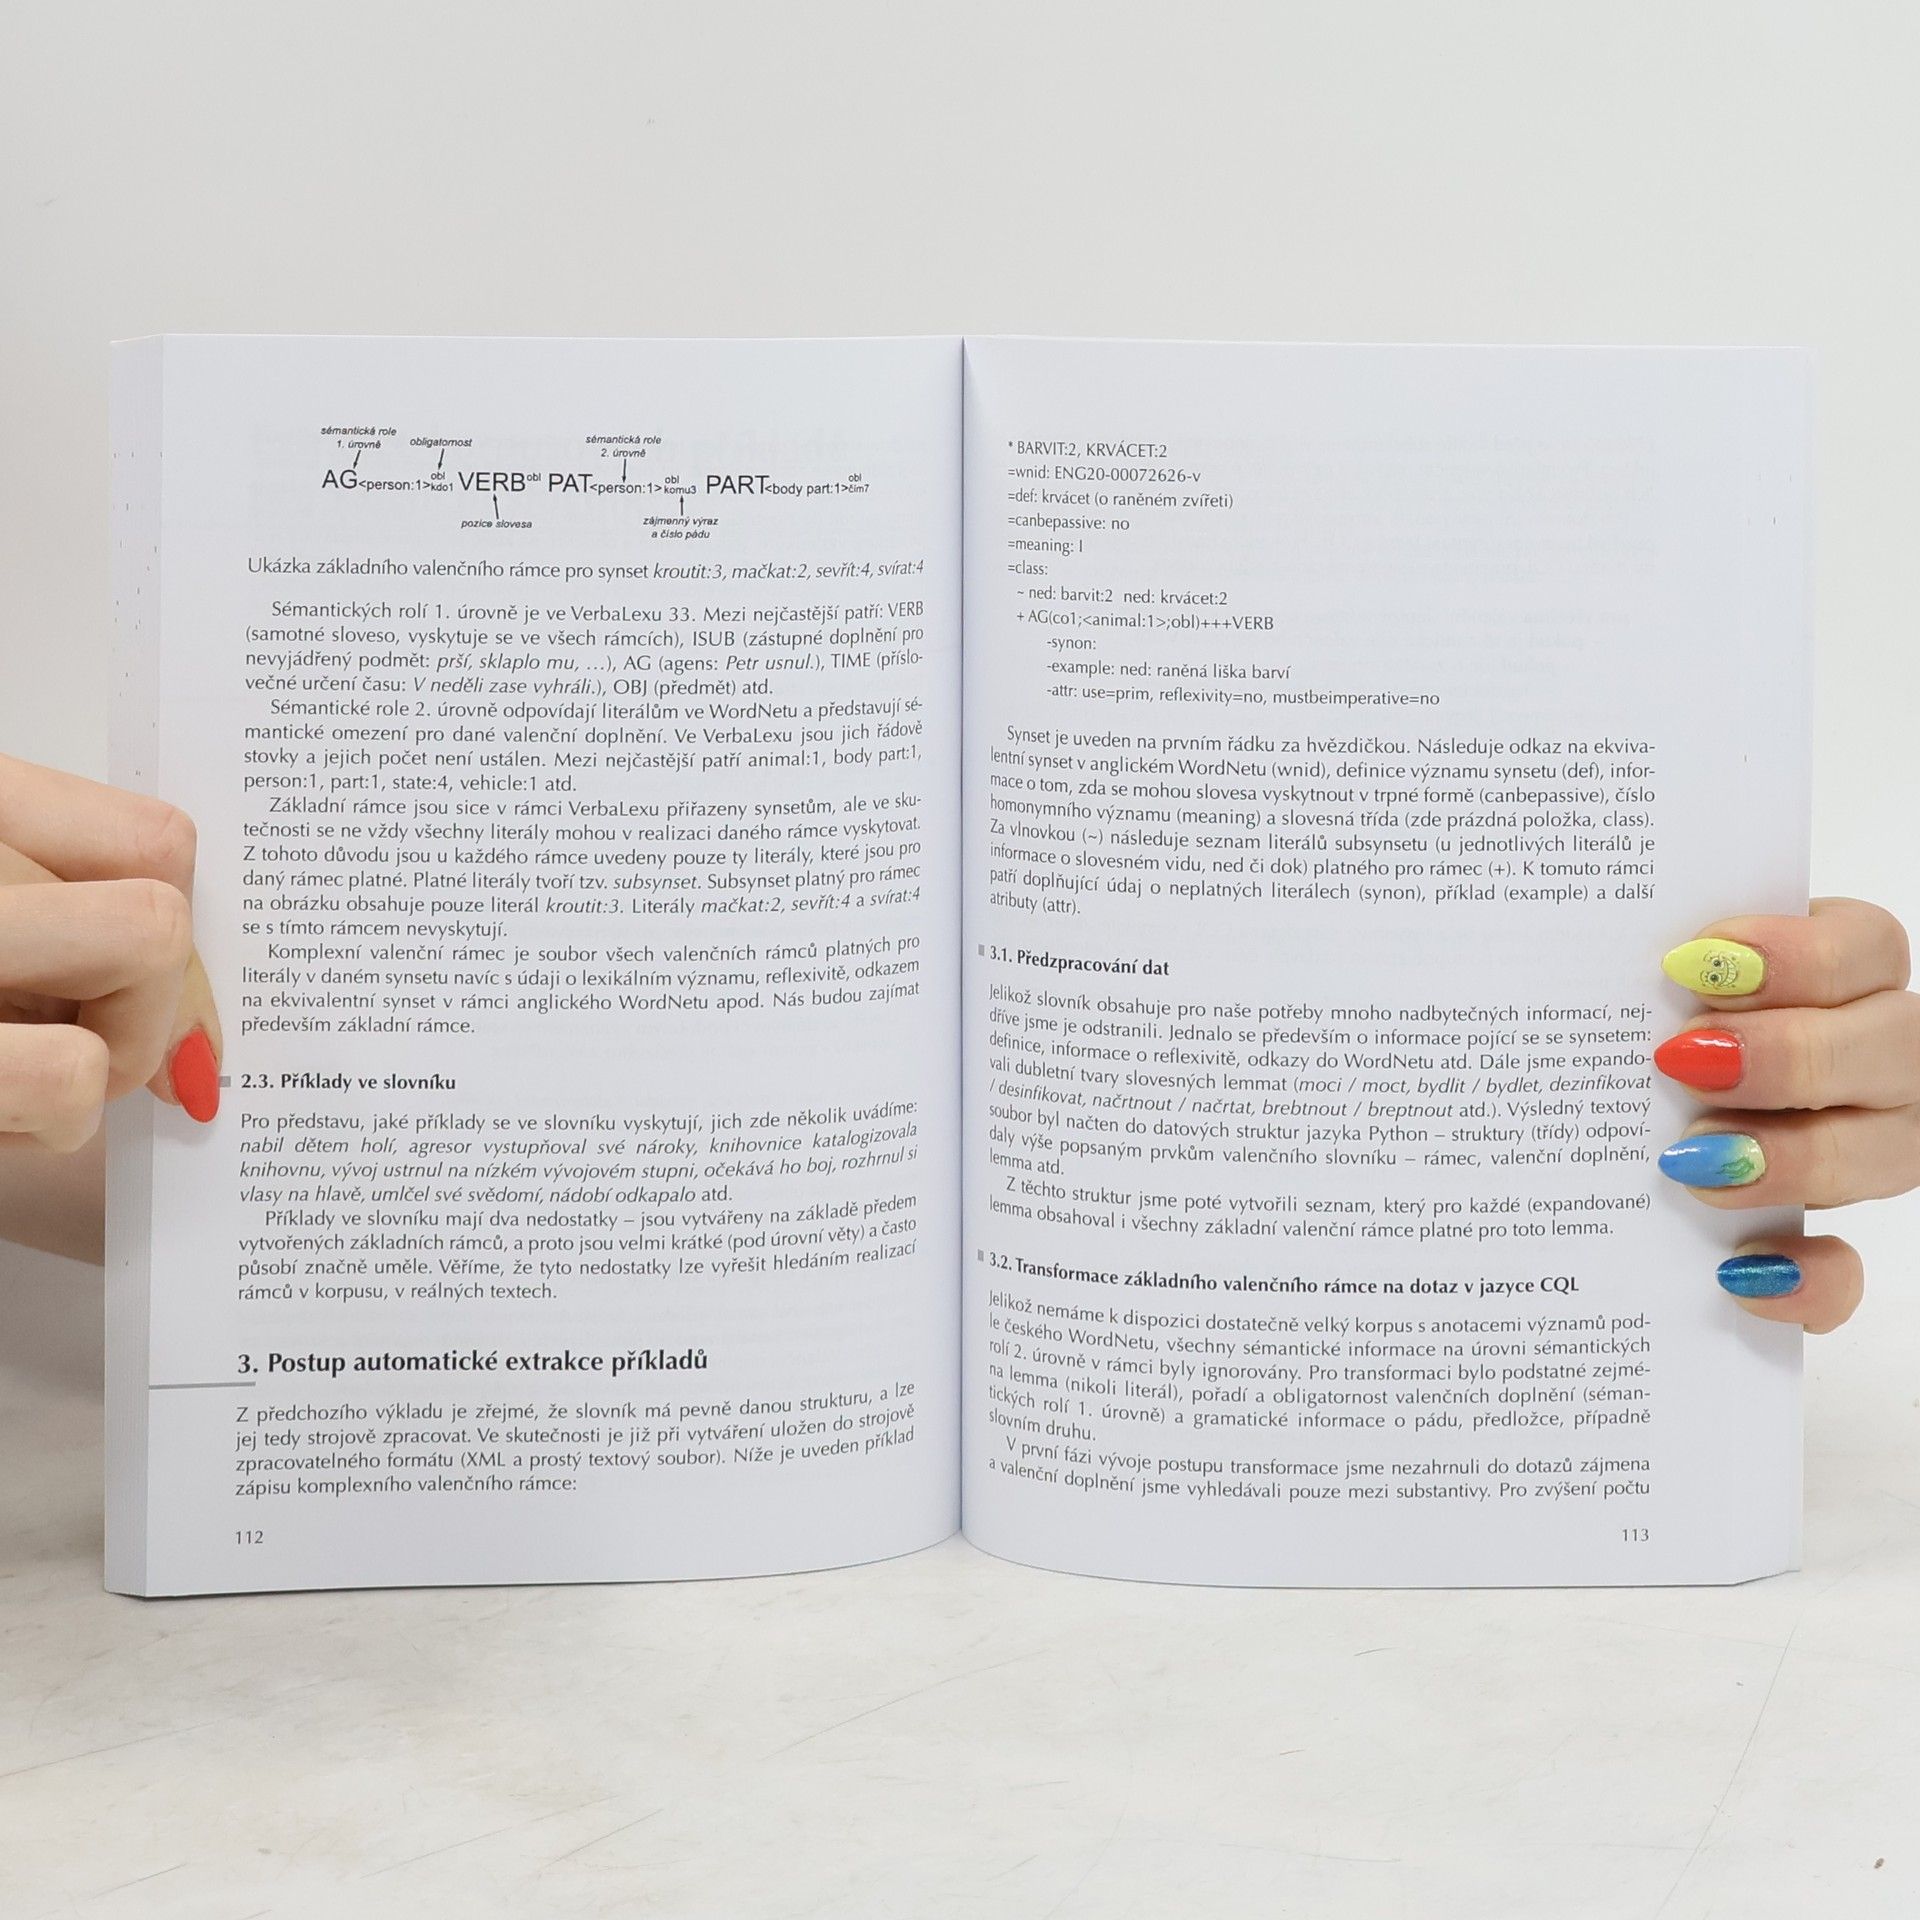 sémantická role
1. úrovně
obligatornost
sémantická role
2. úrovně
AG<person:1>obl kdo1 VERBobl PAT<person:1>obl komu3 PART<body part:1>obl čím7
pozice slovesa
zájmenný výraz
a číslo pádu
Ukázka základního valenčního rámce pro synset kroutit:3, mačkat:2, sevřít:4, svírat:4
Sémantických rolí 1. úrovně je ve VerbaLexu 33. Mezi nejčastější patří: VERB
(samotné sloveso, vyskytuje se ve všech rámcích), ISUB (zástupné doplnění pro
nevyjádřený podmět: prší, sklaplo mu, …), AG (agens: Petr usnul.), TIME (příslo-
večné určení času: V neděli zase vyhráli.), OBJ (předmět) atd.
Sémantické role 2. úrovně odpovídají literálům ve WordNetu a představují sé-
mantické omezení pro dané valenční doplnění. Ve VerbaLexu jsou jich řádově
stovky a jejich počet není ustálen. Mezi nejčastější patří animal:1, body part:1,
person:1, part:1, state:4, vehicle:1 atd.
Základní rámce jsou sice v rámci VerbaLexu přiřazeny synsetům, ale ve sku-
tečnosti se ne vždy všechny literály mohou v realizaci daného rámce vyskytovat.
Z tohoto důvodu jsou u každého rámce uvedeny pouze ty literály, které jsou pro
daný rámec platné. Platné literály tvoří tzv. subsynset. Subsynset platný pro rámec
na obrázku obsahuje pouze literál kroutit:3. Literály mačkat:2, sevřít:4 a svírat:4
se s tímto rámcem nevyskytují.
Komplexní valenční rámec je soubor všech valenčních rámců platných pro
literály v daném synsetu navíc s údaji o lexikálním významu, reflexivitě, odkazem
na ekvivalentní synset v rámci anglického WordNetu apod. Nás budou zajímat
především základní rámce.
2.3. Příklady ve slovníku
Pro představu, jaké příklady se ve slovníku vyskytují, jich zde několik uvádíme:
nabil dětem holí, agresor vystupňoval své nároky, knihovnice katalogizovala
knihovnu, vývoj ustrnul na nízkém vývojovém stupni, očekává ho boj, rozhrnul si
vlasy na hlavě, umlčel své svědomí, nádobí odkapalo atd.
Příklady ve slovníku mají dva nedostatky – jsou vytvářeny na základě předem
vytvořených základních rámců, a proto jsou velmi krátké (pod úrovní věty) a často
působí značně uměle. Věříme, že tyto nedostatky lze vyřešit hledáním realizací
rámců v korpusu, v reálných textech.
3. Postup automatické extrakce příkladů
Z předchozího výkladu je zřejmé, že slovník má pevně danou strukturu, a lze
jej tedy strojově zpracovat. Ve skutečnosti je již při vytváření uložen do strojově
zpracovatelného formátu (XML a prostý textový soubor). Níže je uveden příklad
zápisu komplexního valenčního rámce:
112
* BARVIT:2, KRVÁCET:2
=wnid: ENG20-00072626-v
=def: krvácet (o raněném zvířeti)
=canbepassive: no
=meaning: I
=class:
~ ned: barvit:2 ned: krvácet:2
+ AG(co1;<animal:1>;obl)+++VERB
-synon:
-example: ned: raněná liška barví
-attr: use=prim, reflexivity=no, mustbeimperative=no
Synset je uveden na prvním řádku za hvězdičkou. Následuje odkaz na ekviva-
lentní synset v anglickém WordNetu (wnid), definice významu synsetu (def), infor-
mace o tom, zda se mohou slovesa vyskytnout v trpné formě (canbepassive), číslo
homonymního významu (meaning) a slovesná třída (zde prázdná položka, class).
Za vlnovkou (~) následuje seznam literálů subsynsetu (u jednotlivých literálů je
informace o slovesném vidu, ned či dok) platného pro rámec (+). K tomuto rámci
patří doplňující údaj o neplatných literálech (synon), příklad (example) a další
atributy (attr).
3.1. Předzpracování dat
Jelikož slovník obsahuje pro naše potřeby mnoho nadbytečných informací, nej-
dříve jsme je odstranili. Jednalo se především o informace pojící se se synsetem:
definice, informace o reflexivitě, odkazy do WordNetu atd. Dále jsme expando-
vali dubletní tvary slovesných lemmat (moci / moct, bydlit / bydlet, dezinfikovat
/ desinfikovat, načrtnout / načrtat, brebtnout / breptnout atd.). Výsledný textový
soubor byl načten do datových struktur jazyka Python – struktury (třídy) odpoví-
daly výše popsaným prvkům valenčního slovníku – rámec, valenční doplnění,
lemma atd.
Z těchto struktur jsme poté vytvořili seznam, který pro každé (expandované)
lemma obsahoval i všechny základní valenční rámce platné pro toto lemma.
3.2. Transformace základního valenčního rámce na dotaz v jazyce CQL
Jelikož nemáme k dispozici dostatečně velký korpus s anotacemi významů pod-
le českého WordNetu, všechny sémantické informace na úrovni sémantických
rolí 2. úrovně v rámci byly ignorovány. Pro transformaci bylo podstatné zejmé-
na lemma (nikoli literál), pořadí a obligatornost valenčních doplnění (séman-
tických rolí 1. úrovně) a gramatické informace o pádu, předložce, případně
slovním druhu.
V první fázi vývoje postupu transformace jsme nezahrnuli do dotazů zájmena
a valenční doplnění jsme vyhledávali pouze mezi substantivy. Pro zvýšení počtu
113